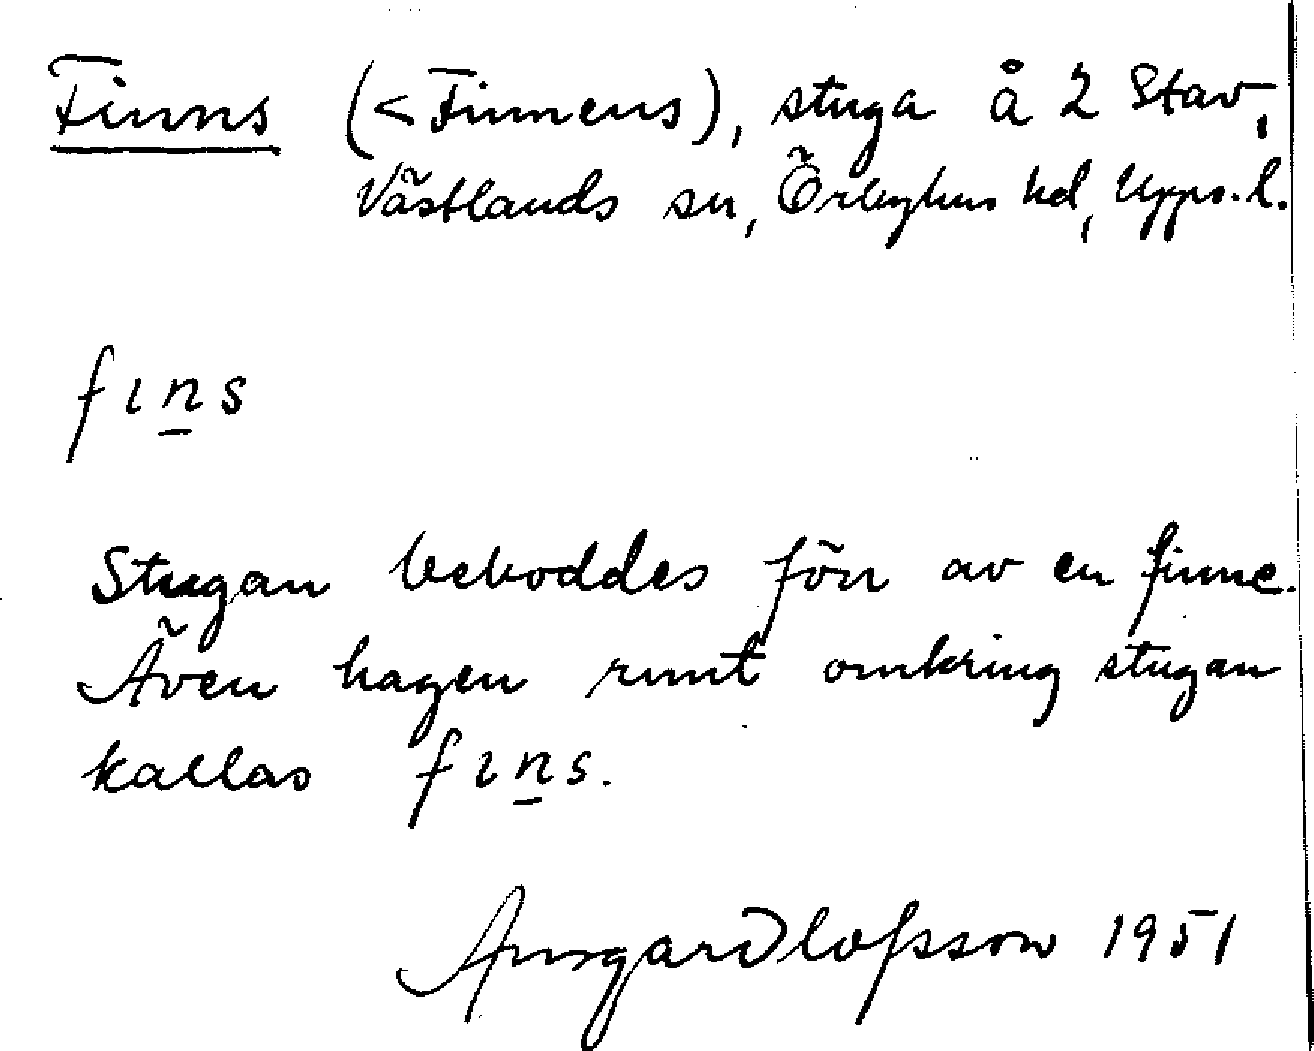 Finns (< Finnens), stuga å 2 Stav,
Västlands sn, Örbyhus hd, Upps. l.
fıṉs
Stugan beboddes förr av en finne.
Även hagen runt omkring stugan
kallas fıṉs.
Ansgar Olofsson 1951